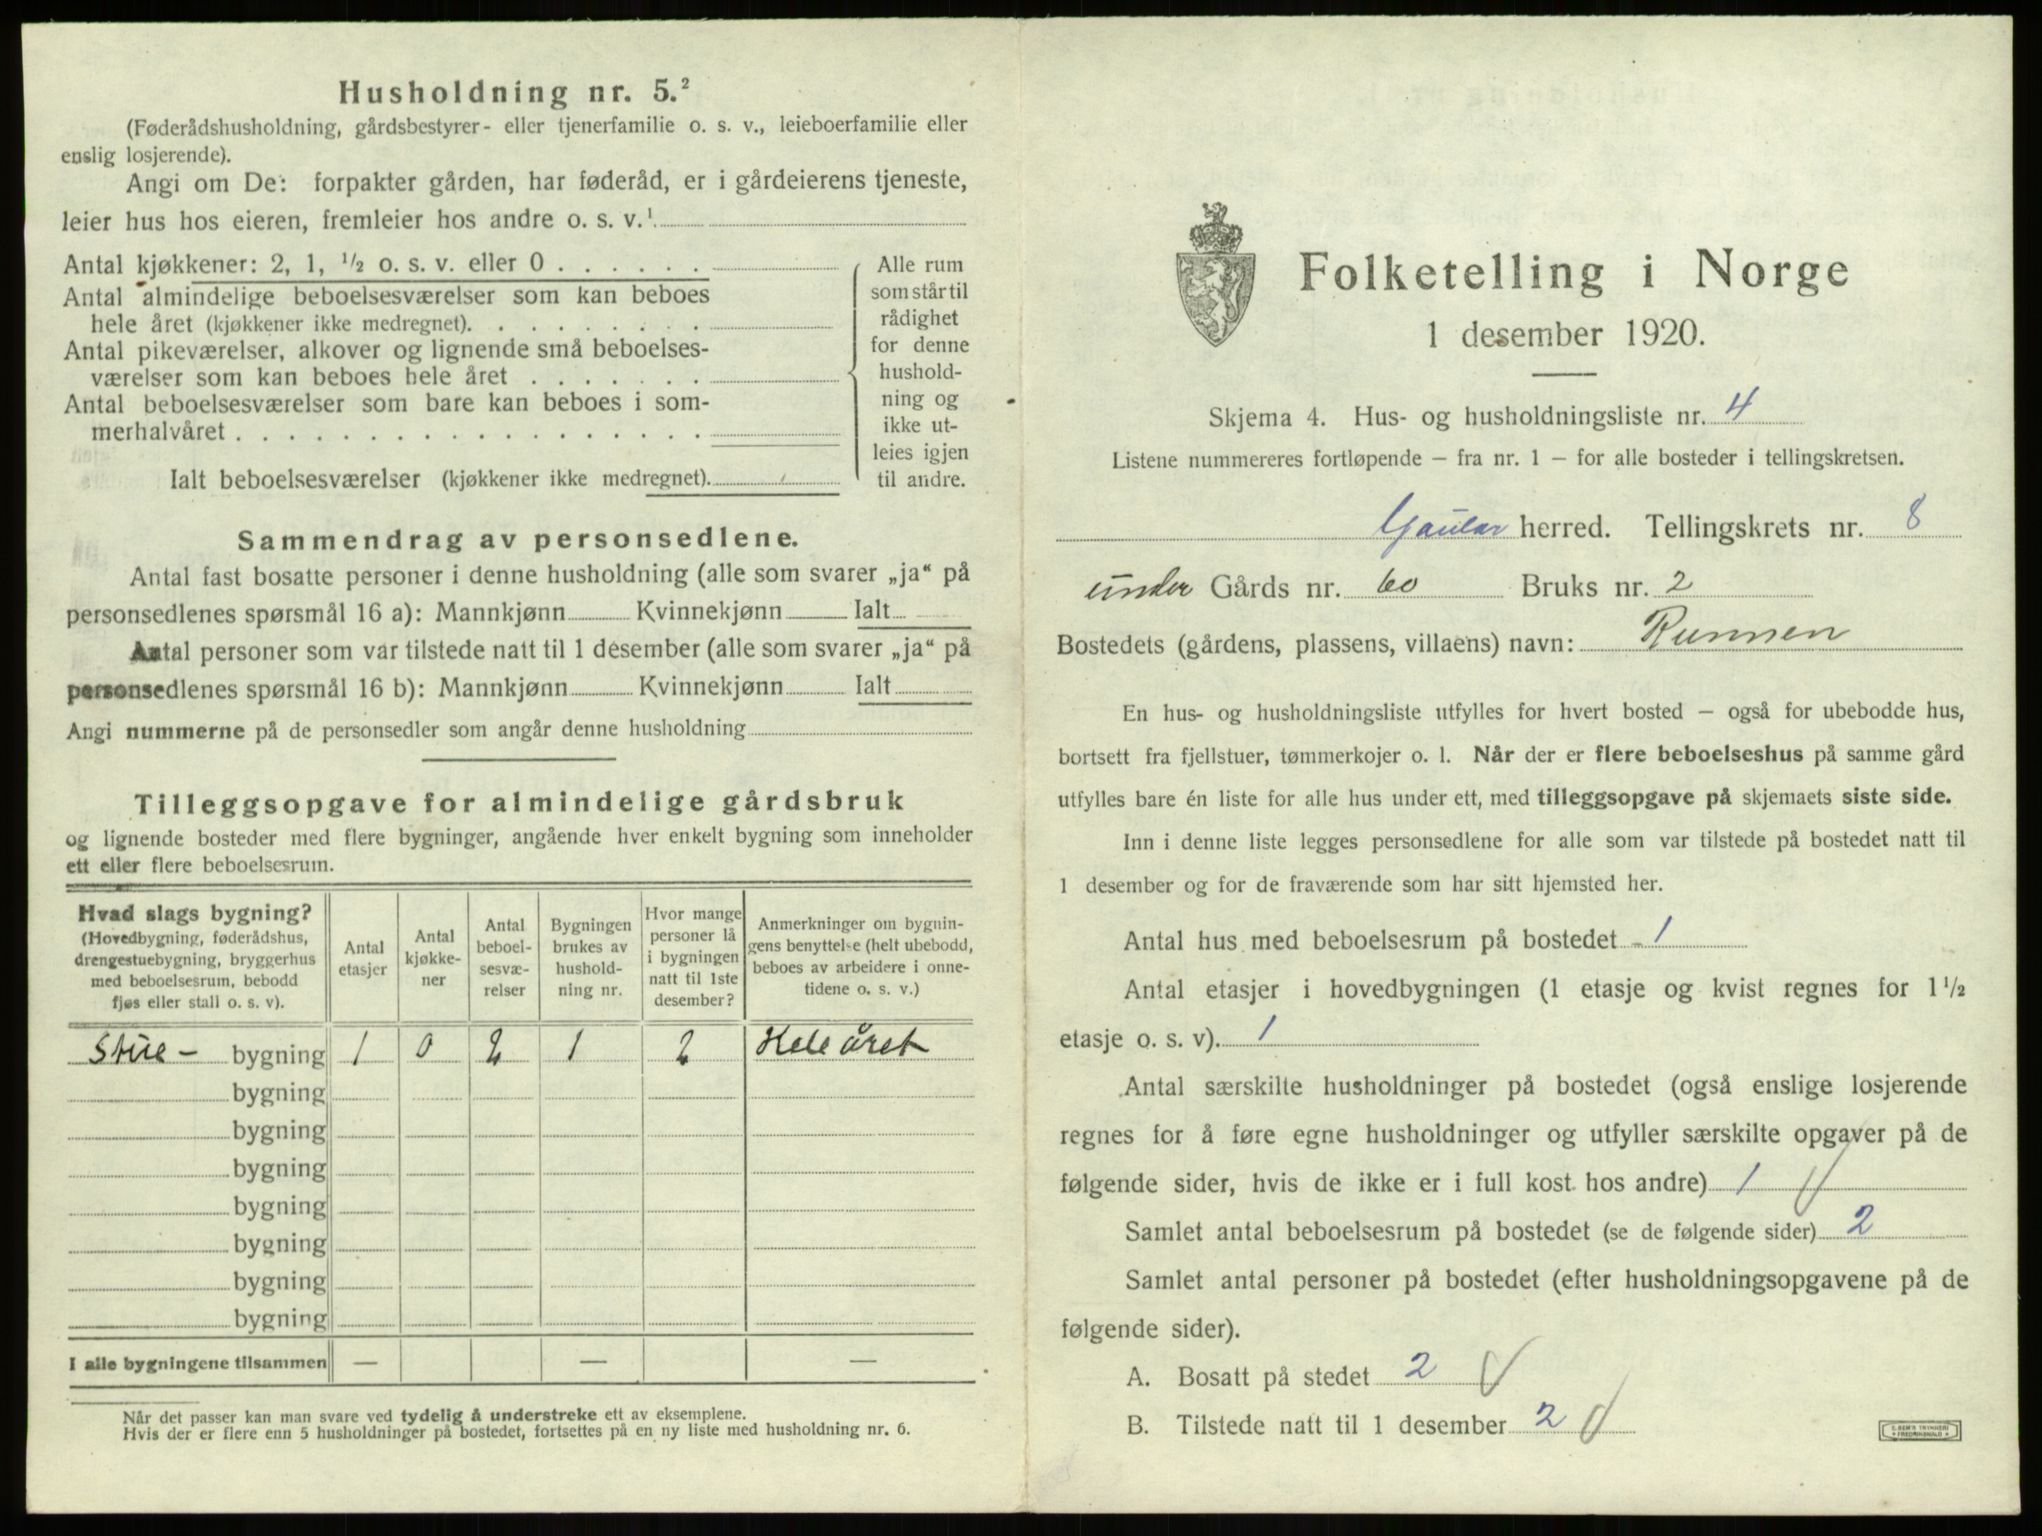 Husholdning nr. 5.²
(Føderådshusholdning, gårdsbestyrer- eller tjenerfamilie o. s. v., leieboerfamilie eller
enslig losjerende).
Angi om De: forpakter gården, har føderåd, er i gårdeierens tjeneste,
leier hus hos eieren, fremleier hos andre o. s. v.¹
Antal kjøkkener: 2, 1, ¹/₂ o. s. v. eller 0 . . . . . .
Antal almindelige beboelsesværelser som kan beboes
hele året (kjøkkener ikke medregnet). . . . . . . . .
Antal pikeværelser, alkover og lignende små beboelses-
værelser som kan beboes hele året . . . . . . .
Antal beboelsesværelser som bare kan beboes i som-
merhalvåret . . . . . . . . . . . . . . . . . .
Ialt beboelsesværelser (kjøkkener ikke medregnet).
Alle rum
som står til
rådighet
for denne
hushold-
ning og
ikke ut-
leies igjen
til andre.
Sammendrag av personsedlene.
Antal fast bosatte personer i denne husholdning (alle som svarer „ja“ på
personsedlenes spørsmål 16 a): Mannkjønn Kvinnekjønn Ialt
Antal personer som var tilstede natt til 1 desember (alle som svarer „ja“ på
personsedlenes spørsmål 16 b): Mannkjønn Kvinnekjønn Ialt
Angi nummerne på de personsedler som angår denne husholdning
Tilleggsopgave for almindelige gårdsbruk
og lignende bosteder med flere bygninger, angående hver enkelt bygning som inneholder
ett eller flere beboelsesrum.
Hvad slags bygning?
(Hovedbygning, føderådshus,
drengestuebygning, bryggerhus
med beboelsesrum, bebodd
fjøs eller stall o. s. v).
Antal
etasjer
Antal
kjøkke-
ner
Antal
beboel-
sesvæ-
relser
Bygningen
brukes av
hushold-
ning nr.
Hvor mange
personer lå
i bygningen
natt til 1ste
desember?
Anmerkninger om bygnin-
gens benyttelse (helt ubebodd,
beboes av arbeidere i onne-
tidene o. s. v.)
Stue- bygning 1 0 2 1 2 Hele året
bygning
bygning
bygning
bygning
bygning
bygning
bygning
I alle bygningene tilsammen — — —
Når det passer kan man svare ved tydelig å understreke ett av eksemplene.
Hvis der er flere enn 5 husholdninger på bostedet, fortsettes på en ny liste med husholdning nr. 6.
Folketelling i Norge
1 desember 1920.
Skjema 4. Hus- og husholdningsliste nr. 4
Listene nummereres fortløpende – fra nr. 1 – for alle bosteder i tellingskretsen.
Gaular herred. Tellingskrets nr. 8
under Gårds nr. 60 Bruks nr. 2
Bostedets (gårdens, plassens, villaens) navn: Runnen
En hus- og husholdningsliste utfylles for hvert bosted – også for ubebodde hus,
bortsett fra fjellstuer, tømmerkojer o. l. Når der er flere beboelseshus på samme gård
utfylles bare én liste for alle hus under ett, med tilleggsopgave på skjemaets siste side.
Inn i denne liste legges personsedlene for alle som var tilstede på bostedet natt til
1 desember og for de fraværende som har sitt hjemsted her.
Antal hus med beboelsesrum på bostedet 1
Antal etasjer i hovedbygningen (1 etasje og kvist regnes for 1 ¹/₂
etasje o. s. v). 1
Antal særskilte husholdninger på bostedet (også enslige losjerende
regnes for å føre egne husholdninger og utfyller særskilte opgaver på de
følgende sider, hvis de ikke er i full kost hos andre) 1
Samlet antal beboelsesrum på bostedet (se de følgende sider) 2
Samlet antal personer på bostedet (efter husholdningsopgavene på de
følgende sider).
A. Bosatt på stedet 2
B. Tilstede natt til 1 desember 2